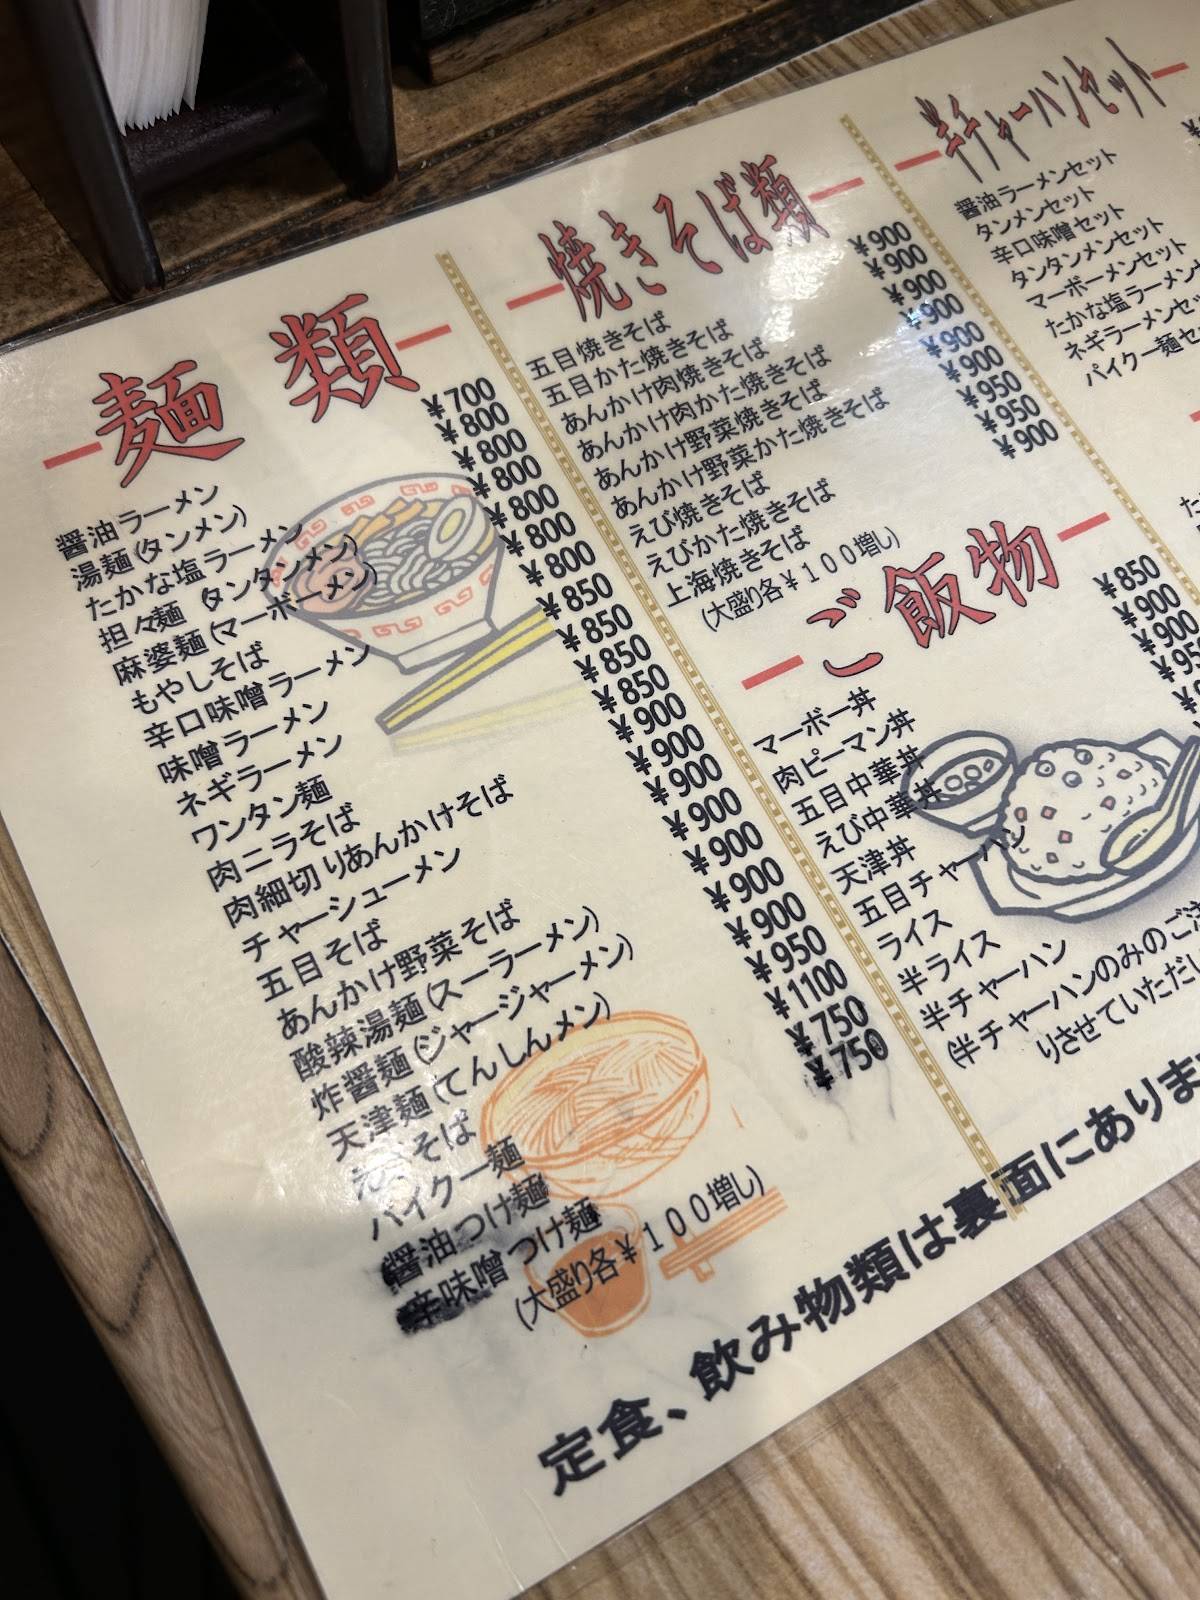 麺類
醤油ラーメン ¥700
湯麺(タンメン) ¥800
たかな塩ラーメン ¥800
担々麺(タンタンメン) ¥800
麻婆麺(マーボーメン) ¥800
もやしそば ¥800
辛口味噌ラーメン ¥800
味噌ラーメン ¥850
ネギラーメン ¥850
ワンタン麺 ¥850
肉ニラそば ¥850
肉細切りあんかけそば ¥900
チャーシューメン ¥900
五目そば ¥900
あんかけ野菜そば ¥900
酸辣湯麺(スーラーメン) ¥900
炸醤麺(ジャージャーメン) ¥900
天津麺(てんしんメン) ¥900
そば ¥950
パイクー麺 ¥1100
醤油つけ麺 ¥750
辛味噌つけ麺 ¥750
(大盛り各¥100増し)
焼きそば類
五目焼きそば ¥900
五目かた焼きそば ¥900
あんかけ肉焼きそば ¥900
あんかけ肉かた焼きそば ¥900
あんかけ野菜焼きそば ¥900
あんかけ野菜かた焼きそば ¥900
えび焼きそば ¥950
えびかた焼きそば ¥950
上海焼きそば ¥900
(大盛り各¥100増し)
ご飯物
マーボー丼 ¥850
肉ピーマン丼 ¥900
五目中華丼 ¥900
えび中華丼
天津丼
五目チャーハン
ライス
半ライス
半チャーハン
(半チャーハンのみのご注
りさせていただ
半チャーハンセット
醤油ラーメンセット
タンメンセット
辛口味噌セット
タンタンメンセット
マーボーメンセット
たかな塩ラーメン
ネギラーメンセ
パイクー麺セ
定食、飲み物類は裏面にありま